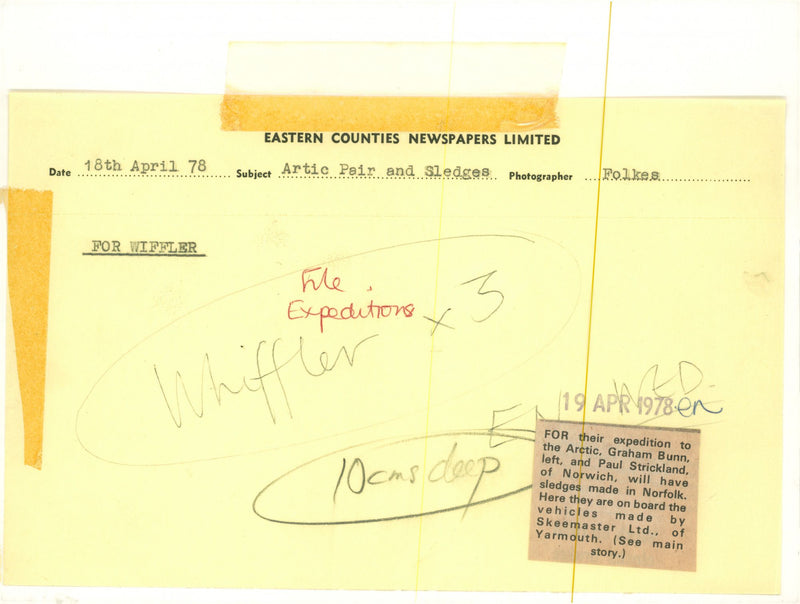 EASTERN COUNTIES NEWSPAPERS LIMITED
Date 18th April 78 Subject Artic Pair and Sledges Photographer Folkes
FOR WIFFLER
File.
Expeditions
Whiffler x 3
WED.
EN
19 APR 1978 en
10cms deep
FOR their expedition to
the Arctic, Graham Bunn,
left, and Paul Strickland,
of Norwich, will have
sledges made in Norfolk.
Here they are on board the
vehicles made by
Skeemaster Ltd., of
Yarmouth. (See main
story.)